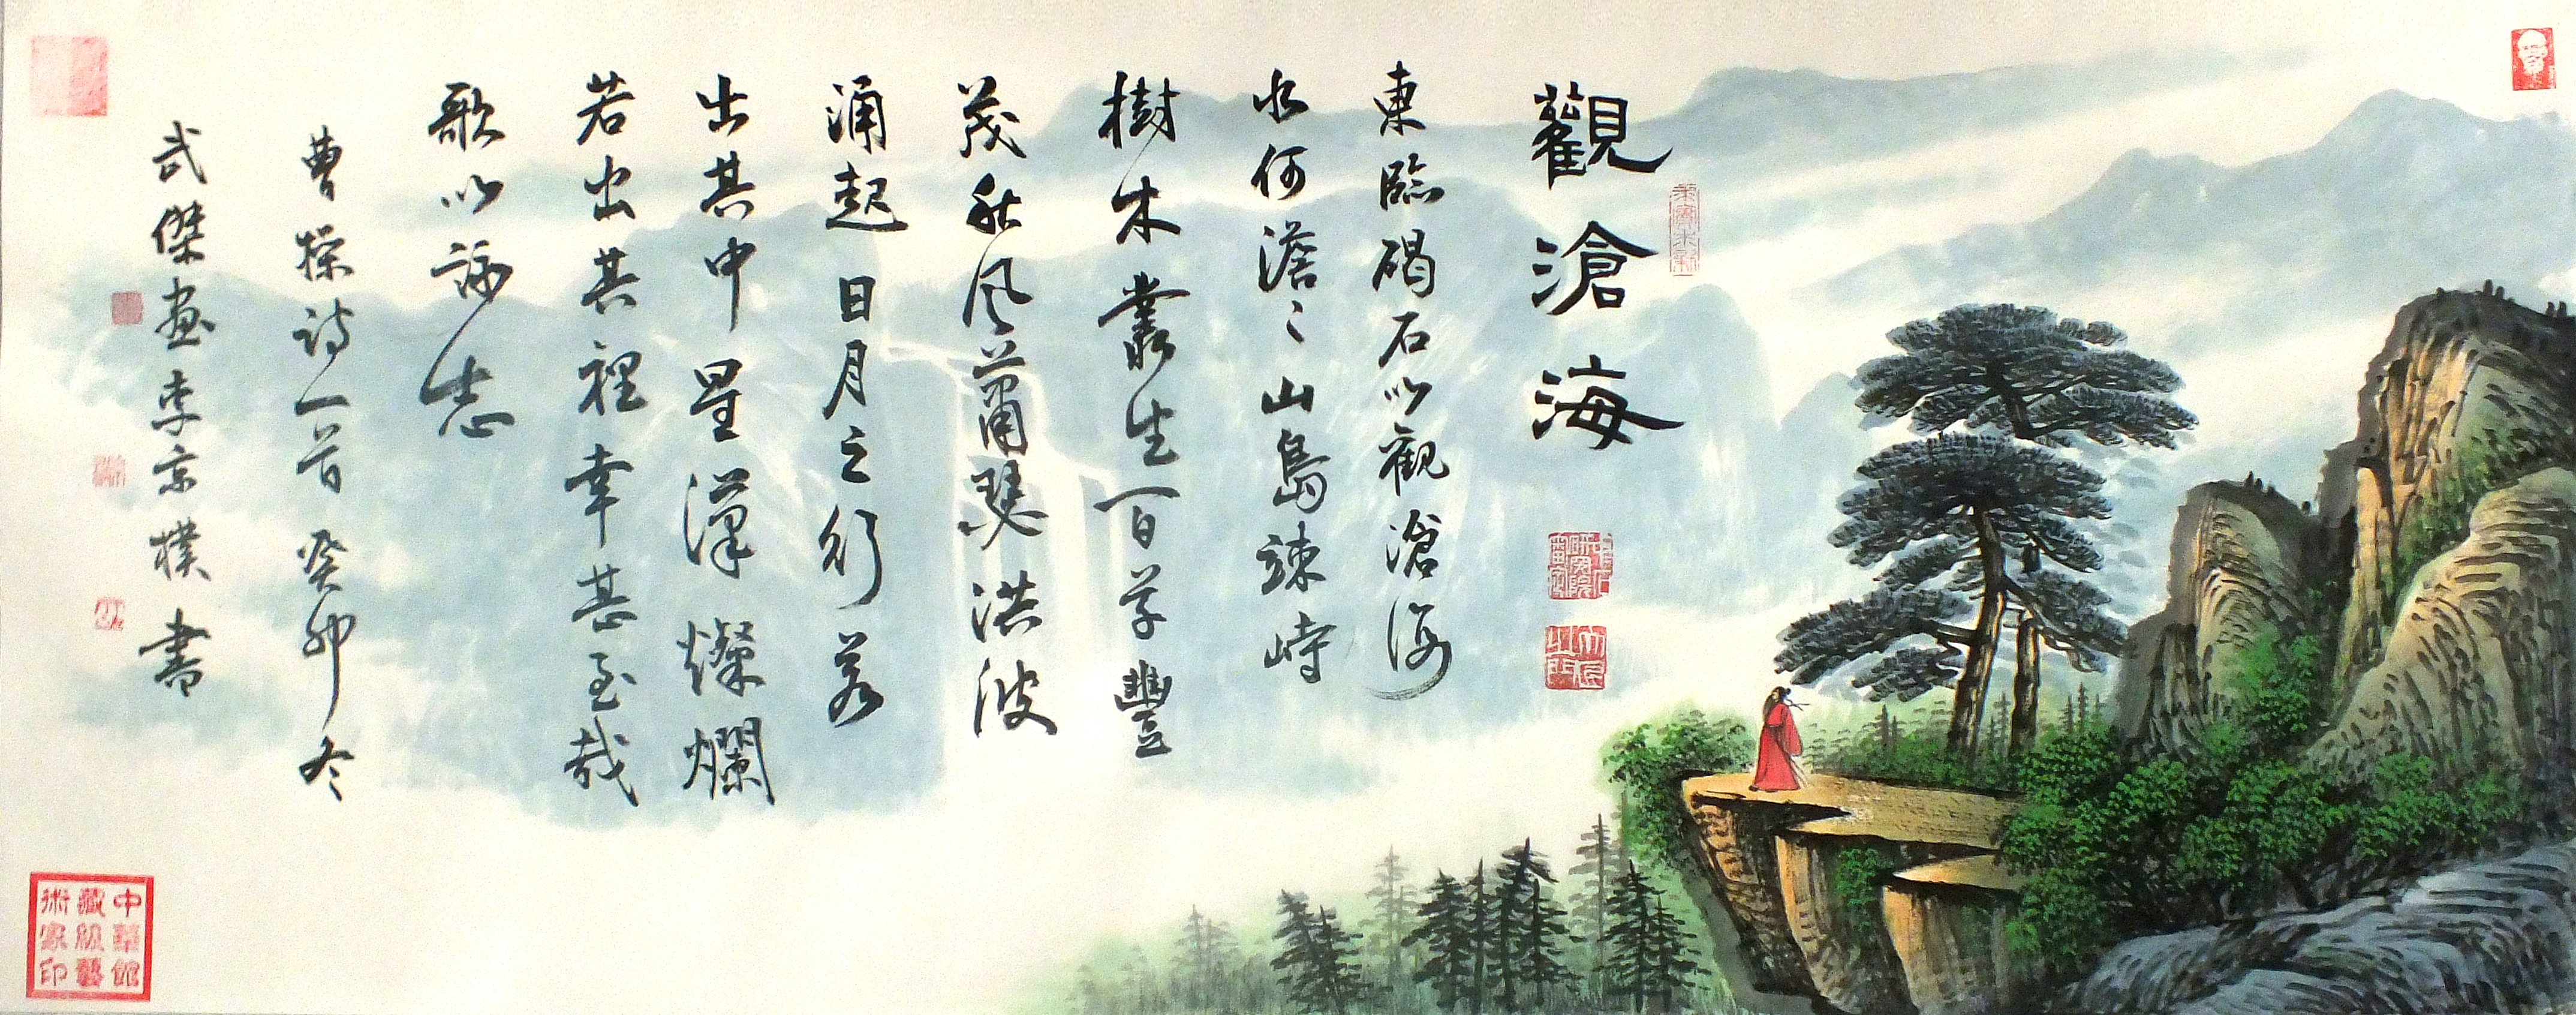 觀滄海
東臨碣石以觀滄海
水何澹〻山島竦峙
樹木叢生百草豐
茂秋風蕭瑟洪波
涌起日月之行若
出其中星漢燦爛
若出其裡幸甚至哉
歌以詠志
曹操詩一首癸卯冬
武傑畫李京樸書
中華館
藏級藝
術家印